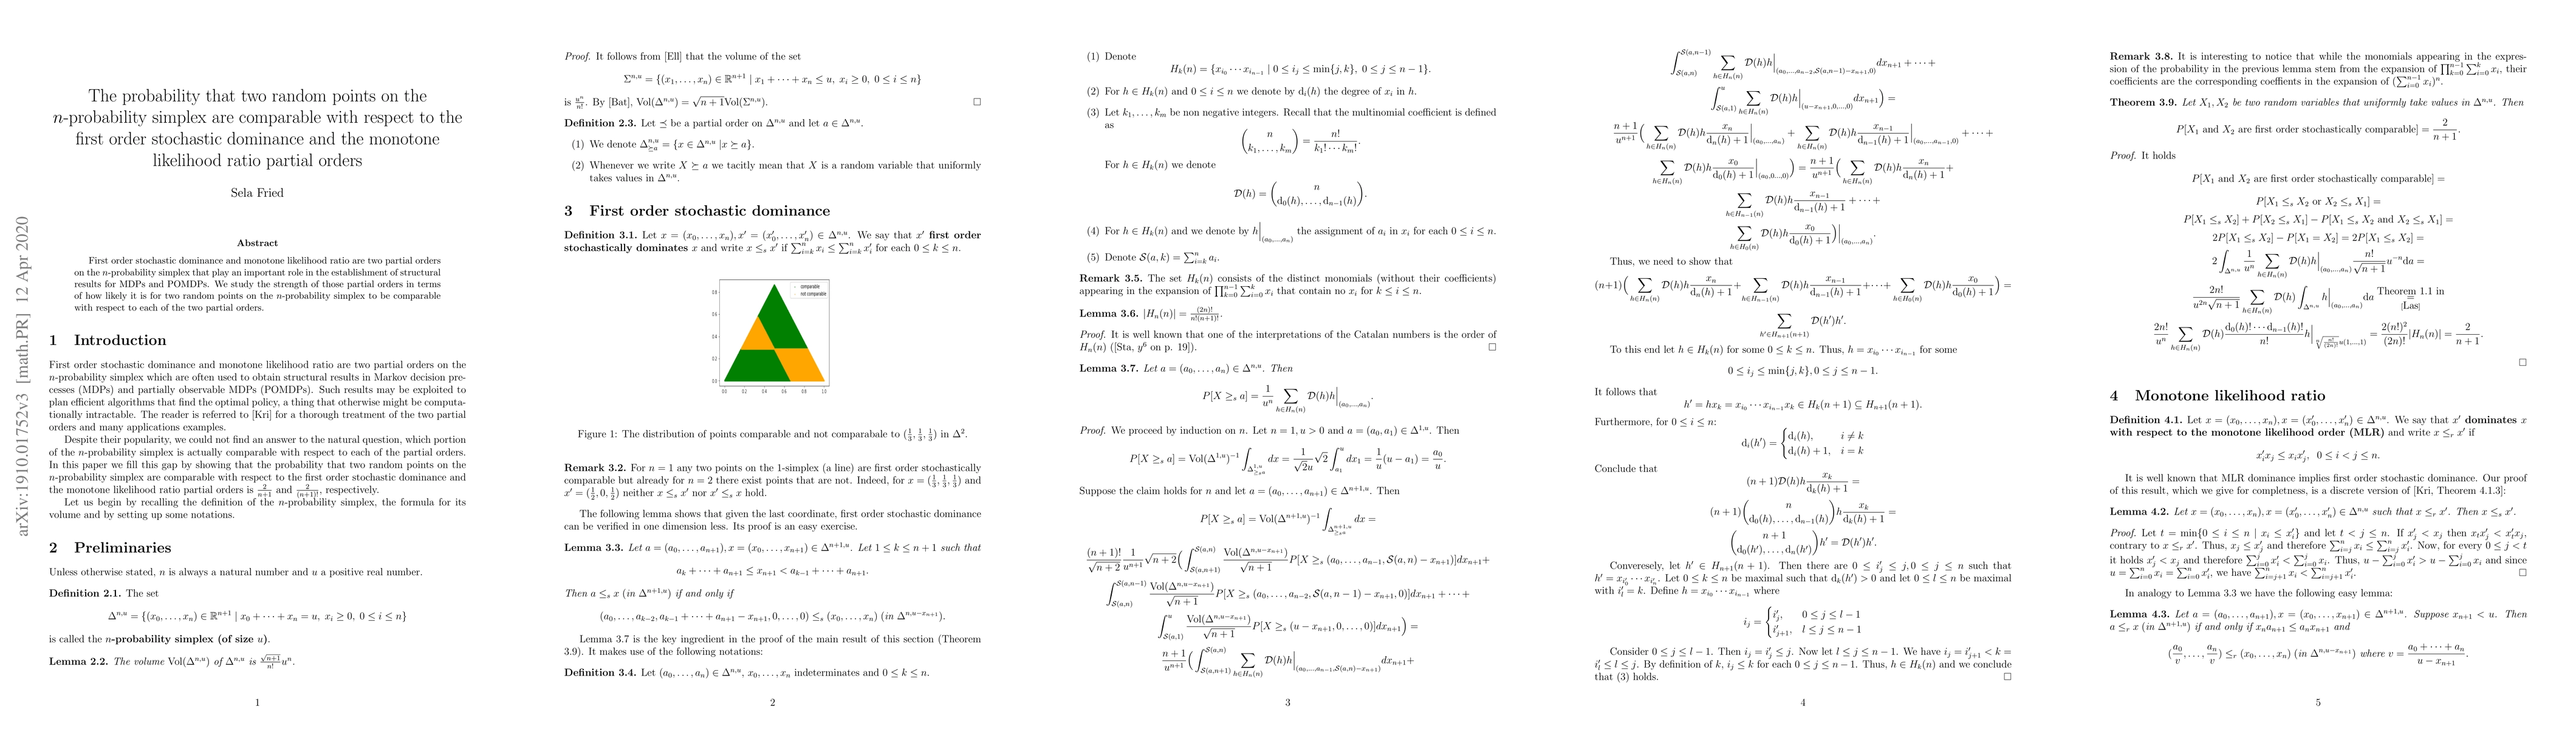 arXiv:1910.01752v3 [math.PR] 12 Apr 2020
The probability that two random points on the
n-probability simplex are comparable with respect to the
first order stochastic dominance and the monotone
likelihood ratio partial orders
Sela Fried
Abstract
First order stochastic dominance and monotone likelihood ratio are two partial orders
on the n-probability simplex that play an important role in the establishment of structural
results for MDPs and POMDPs. We study the strength of those partial orders in terms
of how likely it is for two random points on the n-probability simplex to be comparable
with respect to each of the two partial orders.
1 Introduction
First order stochastic dominance and monotone likelihood ratio are two partial orders on the
n-probability simplex which are often used to obtain structural results in Markov decision pro-
cesses (MDPs) and partially observable MDPs (POMDPs). Such results may be exploited to
plan efficient algorithms that find the optimal policy, a thing that otherwise might be computa-
tionally intractable. The reader is referred to [Kri] for a thorough treatment of the two partial
orders and many applications examples.
Despite their popularity, we could not find an answer to the natural question, which portion
of the n-probability simplex is actually comparable with respect to each of the partial orders.
In this paper we fill this gap by showing that the probability that two random points on the
n-probability simplex are comparable with respect to the first order stochastic dominance and
the monotone likelihood ratio partial orders is 2/(n+1) and 2/(n+1)!, respectively.
Let us begin by recalling the definition of the n-probability simplex, the formula for its
volume and by setting up some notations.
2 Preliminaries
Unless otherwise stated, n is always a natural number and u a positive real number.
Definition 2.1. The set
Δ^{n,u} = {(x_0, . . . , x_n) ∈ ℝ^{n+1} | x_0 + · · · + x_n = u, x_i ≥ 0, 0 ≤ i ≤ n}
is called the n-probability simplex (of size u).
Lemma 2.2. The volume Vol(Δ^{n,u}) of Δ^{n,u} is √(n+1)/n! u^n.
1
Proof. It follows from [Ell] that the volume of the set
Σ^{n,u} = {(x_1, . . . , x_n) ∈ ℝ^{n+1} | x_1 + · · · + x_n ≤ u, x_i ≥ 0, 0 ≤ i ≤ n}
is u^n/n!. By [Bat], Vol(Δ^{n,u}) = √(n + 1)Vol(Σ^{n,u}). □
Definition 2.3. Let ⪯ be a partial order on Δ^{n,u} and let a ∈ Δ^{n,u}.
(1) We denote Δ^{n,u}_{⪰a} = {x ∈ Δ^{n,u} |x ⪰ a}.
(2) Whenever we write X ⪰ a we tacitly mean that X is a random variable that uniformly
takes values in Δ^{n,u}.
3 First order stochastic dominance
Definition 3.1. Let x = (x_0, . . . , x_n), x′ = (x′_0, . . . , x′_n) ∈ Δ^{n,u}. We say that x′ first order
stochastically dominates x and write x ≤_s x′ if ∑_{i=k}^n x_i ≤ ∑_{i=k}^n x′_i for each 0 ≤ k ≤ n.
comparable
not comparable
0.8
0.6
0.4
0.2
0.0
0.0 0.2 0.4 0.6 0.8 1.0
Figure 1: The distribution of points comparable and not comparabale to (1/3, 1/3, 1/3) in Δ^2.
Remark 3.2. For n = 1 any two points on the 1-simplex (a line) are first order stochastically
comparable but already for n = 2 there exist points that are not. Indeed, for x = (1/3, 1/3, 1/3) and
x′ = (1/2, 0, 1/2) neither x ≤_s x′ nor x′ ≤_s x hold.
The following lemma shows that given the last coordinate, first order stochastic dominance
can be verified in one dimension less. Its proof is an easy exercise.
Lemma 3.3. Let a = (a_0, . . . , a_{n+1}), x = (x_0, . . . , x_{n+1}) ∈ Δ^{n+1,u}. Let 1 ≤ k ≤ n + 1 such that
a_k + · · · + a_{n+1} ≤ x_{n+1} < a_{k−1} + · · · + a_{n+1}.
Then a ≤_s x (in Δ^{n+1,u}) if and only if
(a_0, . . . , a_{k−2}, a_{k−1} + · · · + a_{n+1} − x_{n+1}, 0, . . . , 0) ≤_s (x_0, . . . , x_n) (in Δ^{n,u−x_{n+1}}).
Lemma 3.7 is the key ingredient in the proof of the main result of this section (Theorem
3.9). It makes use of the following notations:
Definition 3.4. Let (a_0, . . . , a_n) ∈ Δ^{n,u}, x_0, . . . , x_n indeterminates and 0 ≤ k ≤ n.
2
(1) Denote
H_k(n) = {x_{i_0} · · · x_{i_{n−1}} | 0 ≤ i_j ≤ min{j, k}, 0 ≤ j ≤ n − 1}.
(2) For h ∈ H_k(n) and 0 ≤ i ≤ n we denote by d_i(h) the degree of x_i in h.
(3) Let k_1, . . . , k_m be non negative integers. Recall that the multinomial coefficient is defined
as
(n choose k_1, . . . , k_m) = n!/(k_1! · · · k_m!).
For h ∈ H_k(n) we denote
𝒟(h) = (n choose d_0(h), . . . , d_{n−1}(h)).
(4) For h ∈ H_k(n) and we denote by h|_{(a_0,...,a_n)} the assignment of a_i in x_i for each 0 ≤ i ≤ n.
(5) Denote 𝒮(a, k) = ∑_{i=k}^n a_i.
Remark 3.5. The set H_k(n) consists of the distinct monomials (without their coefficients)
appearing in the expansion of ∏_{k=0}^{n−1} ∑_{i=0}^k x_i that contain no x_i for k ≤ i ≤ n.
Lemma 3.6. |H_n(n)| = (2n)!/(n!(n+1)!).
Proof. It is well known that one of the interpretations of the Catalan numbers is the order of
H_n(n) ([Sta, y^6 on p. 19]). □
Lemma 3.7. Let a = (a_0, . . . , a_n) ∈ Δ^{n,u}. Then
P[X ≥_s a] = 1/u^n ∑_{h∈H_n(n)} 𝒟(h)h|_{(a_0,...,a_n)}.
Proof. We proceed by induction on n. Let n = 1, u > 0 and a = (a_0, a_1) ∈ Δ^{1,u}. Then
P[X ≥_s a] = Vol(Δ^{1,u})^{−1} ∫_{Δ^{1,u}_{≥_s a}} dx = 1/(√2u) √2 ∫_{a_1}^u dx_1 = 1/u (u − a_1) = a_0/u.
Suppose the claim holds for n and let a = (a_0, . . . , a_{n+1}) ∈ Δ^{n+1,u}. Then
P[X ≥_s a] = Vol(Δ^{n+1,u})^{−1} ∫_{Δ^{n+1,u}_{≥_s a}} dx =
(n + 1)!/√(n + 2) 1/u^{n+1} √(n + 2)(∫_{𝒮(a,n+1)}^{𝒮(a,n)} Vol(Δ^{n,u−x_{n+1}})/√(n + 1) P[X ≥_s (a_0, . . . , a_{n−1}, 𝒮(a, n) − x_{n+1})]dx_{n+1}+
∫_{𝒮(a,n)}^{𝒮(a,n−1)} Vol(Δ^{n,u−x_{n+1}})/√(n + 1) P[X ≥_s (a_0, . . . , a_{n−2}, 𝒮(a, n − 1) − x_{n+1}, 0)]dx_{n+1} + · · · +
∫_{𝒮(a,1)}^u Vol(Δ^{n,u−x_{n+1}})/√(n + 1) P[X ≥_s (u − x_{n+1}, 0, . . . , 0)]dx_{n+1}) =
(n + 1)/u^{n+1} (∫_{𝒮(a,n+1)}^{𝒮(a,n)} ∑_{h∈H_n(n)} 𝒟(h)h|_{(a_0,...,a_{n−1},𝒮(a,n)−x_{n+1})} dx_{n+1}+
3
∫_{𝒮(a,n)}^{𝒮(a,n−1)} ∑_{h∈H_n(n)} 𝒟(h)h|_{(a_0,...,a_{n−2},𝒮(a,n−1)−x_{n+1},0)} dx_{n+1} + · · · +
∫_{𝒮(a,1)}^u ∑_{h∈H_n(n)} 𝒟(h)h|_{(u−x_{n+1},0,...,0)} dx_{n+1}) =
(n + 1)/u^{n+1} (∑_{h∈H_n(n)} 𝒟(h)h x_n/(d_n(h) + 1)|_{(a_0,...,a_n)} + ∑_{h∈H_n(n)} 𝒟(h)h x_{n−1}/(d_{n−1}(h) + 1)|_{(a_0,...,a_{n−1},0)} + · · · +
∑_{h∈H_n(n)} 𝒟(h)h x_0/(d_0(h) + 1)|_{(a_0,0...,0)}) = (n + 1)/u^{n+1} (∑_{h∈H_n(n)} 𝒟(h)h x_n/(d_n(h) + 1) +
∑_{h∈H_{n−1}(n)} 𝒟(h)h x_{n−1}/(d_{n−1}(h) + 1) + · · · +
∑_{h∈H_0(n)} 𝒟(h)h x_0/(d_0(h) + 1))|_{(a_0,...,a_n)}.
Thus, we need to show that
(n+1)(∑_{h∈H_n(n)} 𝒟(h)h x_n/(d_n(h) + 1) + ∑_{h∈H_{n−1}(n)} 𝒟(h)h x_{n−1}/(d_{n−1}(h) + 1) + · · · + ∑_{h∈H_0(n)} 𝒟(h)h x_0/(d_0(h) + 1)) =
∑_{h′∈H_{n+1}(n+1)} 𝒟(h′)h′.
To this end let h ∈ H_k(n) for some 0 ≤ k ≤ n. Thus, h = x_{i_0} · · · x_{i_{n−1}} for some
0 ≤ i_j ≤ min{j, k}, 0 ≤ j ≤ n − 1.
It follows that
h′ = hx_k = x_{i_0} · · · x_{i_{n−1}} x_k ∈ H_k(n + 1) ⊆ H_{n+1}(n + 1).
Furthermore, for 0 ≤ i ≤ n:
d_i(h′) = { d_i(h), i ≠ k
d_i(h) + 1, i = k
Conclude that
(n + 1)𝒟(h)h x_k/(d_k(h) + 1) =
(n + 1)(n choose d_0(h), . . . , d_{n−1}(h))h x_k/(d_k(h) + 1) =
(n + 1 choose d_0(h′), . . . , d_n(h′))h′ = 𝒟(h′)h′.
Conversely, let h′ ∈ H_{n+1}(n + 1). Then there are 0 ≤ i′_j ≤ j, 0 ≤ j ≤ n such that
h′ = x_{i′_0} · · · x_{i′_n}. Let 0 ≤ k ≤ n be maximal such that d_k(h′) > 0 and let 0 ≤ l ≤ n be maximal
with i′_l = k. Define h = x_{i_0} · · · x_{i_{n−1}} where
i_j = { i′_j, 0 ≤ j ≤ l − 1
i′_{j+1}, l ≤ j ≤ n − 1
Consider 0 ≤ j ≤ l − 1. Then i_j = i′_j ≤ j. Now let l ≤ j ≤ n − 1. We have i_j = i′_{j+1} < k =
i′_l ≤ l ≤ j. By definition of k, i_j ≤ k for each 0 ≤ j ≤ n − 1. Thus, h ∈ H_k(n) and we conclude
that (3) holds. □
4
Remark 3.8. It is interesting to notice that while the monomials appearing in the expres-
sion of the probability in the previous lemma stem from the expansion of ∏_{k=0}^{n−1} ∑_{i=0}^k x_i, their
coefficients are the corresponding coeffients in the expansion of (∑_{i=0}^{n−1} x_i)^n.
Theorem 3.9. Let X_1, X_2 be two random variables that uniformly take values in Δ^{n,u}. Then
P[X_1 and X_2 are first order stochastically comparable] = 2/(n + 1).
Proof. It holds
P[X_1 and X_2 are first order stochastically comparable] =
P[X_1 ≤_s X_2 or X_2 ≤_s X_1] =
P[X_1 ≤_s X_2] + P[X_2 ≤_s X_1] − P[X_1 ≤_s X_2 and X_2 ≤_s X_1] =
2P[X_1 ≤_s X_2] − P[X_1 = X_2] = 2P[X_1 ≤_s X_2] =
2 ∫_{Δ^{n,u}} 1/u^n ∑_{h∈H_n(n)} 𝒟(h)h|_{(a_0,...,a_n)} n!/√(n + 1) u^{−n}da =
2n!/(u^{2n}√(n + 1)) ∑_{h∈H_n(n)} 𝒟(h) ∫_{Δ^{n,u}} h|_{(a_0,...,a_n)} da =^{Theorem 1.1 in [Las]}
2n!/u^n ∑_{h∈H_n(n)} 𝒟(h) d_0(h)! · · · d_{n−1}(h)!/n! h|_{ⁿ√(n!/(2n)!) u(1,...,1)} = 2(n!)^2/(2n)! |H_n(n)| = 2/(n + 1).
□
4 Monotone likelihood ratio
Definition 4.1. Let x = (x_0, . . . , x_n), x = (x′_0, . . . , x′_n) ∈ Δ^{n,u}. We say that x′ dominates x
with respect to the monotone likelihood order (MLR) and write x ≤_r x′ if
x′_i x_j ≤ x_i x′_j, 0 ≤ i < j ≤ n.
It is well known that MLR dominance implies first order stochastic dominance. Our proof
of this result, which we give for completeness, is a discrete version of [Kri, Theorem 4.1.3]:
Lemma 4.2. Let x = (x_0, . . . , x_n), x = (x′_0, . . . , x′_n) ∈ Δ^{n,u} such that x ≤_r x′. Then x ≤_s x′.
Proof. Let t = min{0 ≤ i ≤ n | x_i ≤ x′_i} and let t < j ≤ n. If x′_j < x_j then x_t x′_j < x′_t x_j,
contrary to x ≤_r x′. Thus, x_j ≤ x′_j and therefore ∑_{i=j}^n x_i ≤ ∑_{i=j}^n x′_i. Now, for every 0 ≤ j < t
it holds x′_j < x_j and therefore ∑_{i=0}^j x′_i < ∑_{i=0}^j x_i. Thus, u − ∑_{i=0}^j x′_i > u − ∑_{i=0}^j x_i and since
u = ∑_{i=0}^n x_i = ∑_{i=0}^n x′_i, we have ∑_{i=j+1}^n x_i < ∑_{i=j+1}^n x′_i. □
In analogy to Lemma 3.3 we have the following easy lemma:
Lemma 4.3. Let a = (a_0, . . . , a_{n+1}), x = (x_0, . . . , x_{n+1}) ∈ Δ^{n+1,u}. Suppose x_{n+1} < u. Then
a ≤_r x (in Δ^{n+1,u}) if and only if x_n a_{n+1} ≤ a_n x_{n+1} and
(a_0/v, . . . , a_n/v) ≤_r (x_0, . . . , x_n) (in Δ^{n,u−x_{n+1}}) where v = (a_0 + · · · + a_n)/(u − x_{n+1}).
5